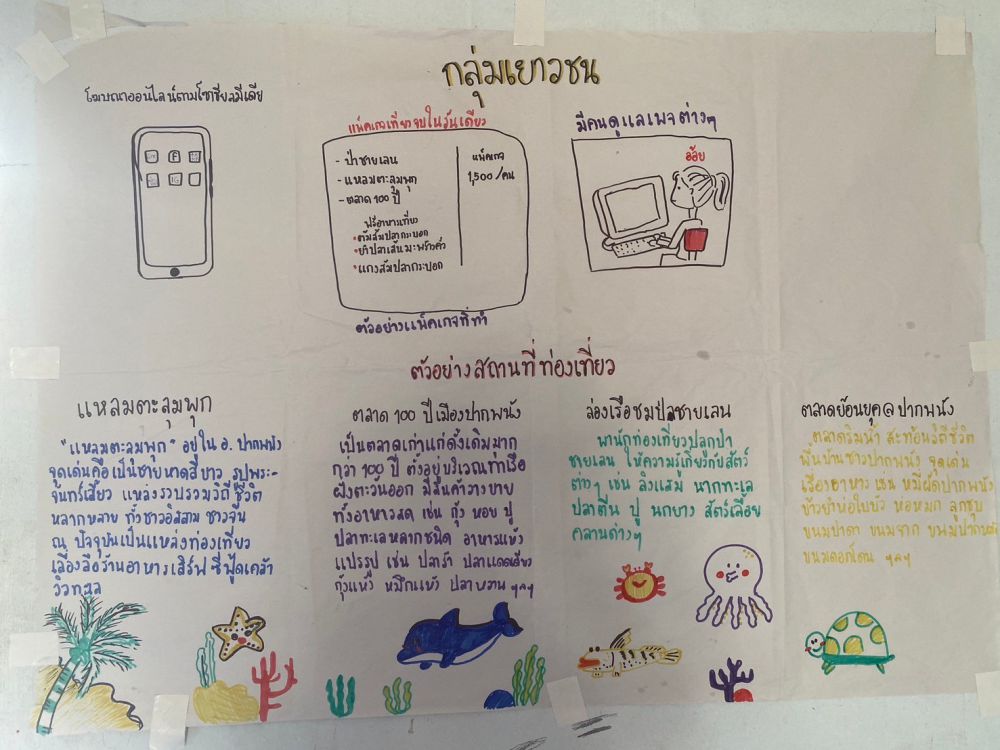 กลุ่มเยาวชน
โฆษณาออนไลน์ตามโซเชียลมีเดีย
แพ็คเกจเที่ยวจบในวันเดียว
- ป่าชายเลน
- แหลมตะลุมพุก
- ตลาด 100 ปี
ฟรีอาหารเที่ยง
• ต้มส้มปลากระบอก
• ยำปลาเส้นมะพร้าวคั่ว
• แกงส้มปลากะบอก
แพ็คเกจ
1,500 /คน
ตัวอย่างแพ็คเกจที่ทำ
มีคนดูแลเพจต่างๆ
ตัวอย่างสถานที่ท่องเที่ยว
แหลมตะลุมพุก
"แหลมตะลุมพุก" อยู่ใน อ. ปากพนัง
จุดเด่นคือเป็นชายหาดสีขาว รูปพระ-
จันทร์เสี้ยว แหล่งรวบรวมวิถีชีวิต
หลากหลาย ทั้งชาวอิสลาม ชาวจีน
ณ ปัจจุบันเป็นแหล่งท่องเที่ยว
เลื่องลือร้านอาหารเสิร์ฟ ซีฟู้ดเคล้า
วิวทะเล
ตลาด 100 ปีเมืองปากพนัง
เป็นตลาดเก่าแก่ดั้งเดิมมาก
กว่า 100 ปี ตั้งอยู่บริเวณท่าเรือ
ฝั่งตะวันออก มีสินค้าวางขาย
ทั้งอาหารสด เช่น กุ้ง หอย ปู
ปลาทะเลหลากชนิด อาหารแห้ง
แปรรูป เช่น ปลาร้า ปลาแดดเดียว
กุ้งแห้ง หมึกแห้ง ปลาหวาน ฯลฯ
ล่องเรือชมป่าชายเลน
พานักท่องเที่ยวปลูกป่า
ชายเลน ให้ความรู้เกี่ยวกับสัตว์
ต่างๆ เช่น ลิงแสม นากทะเล
ปลาตีน ปู นกยาง สัตว์เลื้อย
คลานต่างๆ
ตลาดย้อนยุค@ปากพนัง
ตลาดริมน้ำ สะท้อนวิถีชีวิต
พื้นบ้านชาวปากพนัง จุดเด่น
เรื่องอาหาร เช่น หมี่ผัดปากพนัง
ข้าวยำห่อใบบัว ห่อหมก ลูกชุบ
ขนมปาดา ขนมจาก
ขนมดอกโดน ฯลฯ